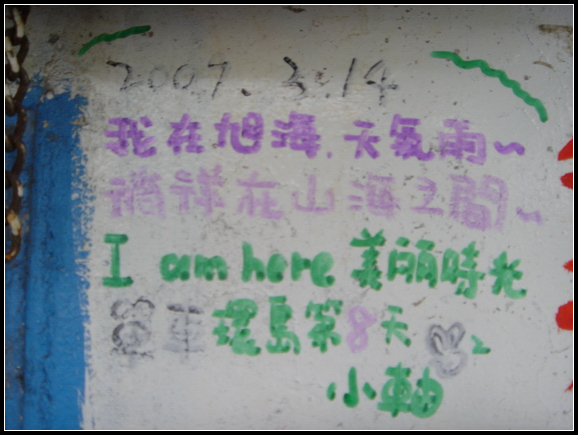 2007.3.14
我在旭海.天氣雨~
徜徉在山海之間~
I am here 美麗時光
單車環島第8天
小軸